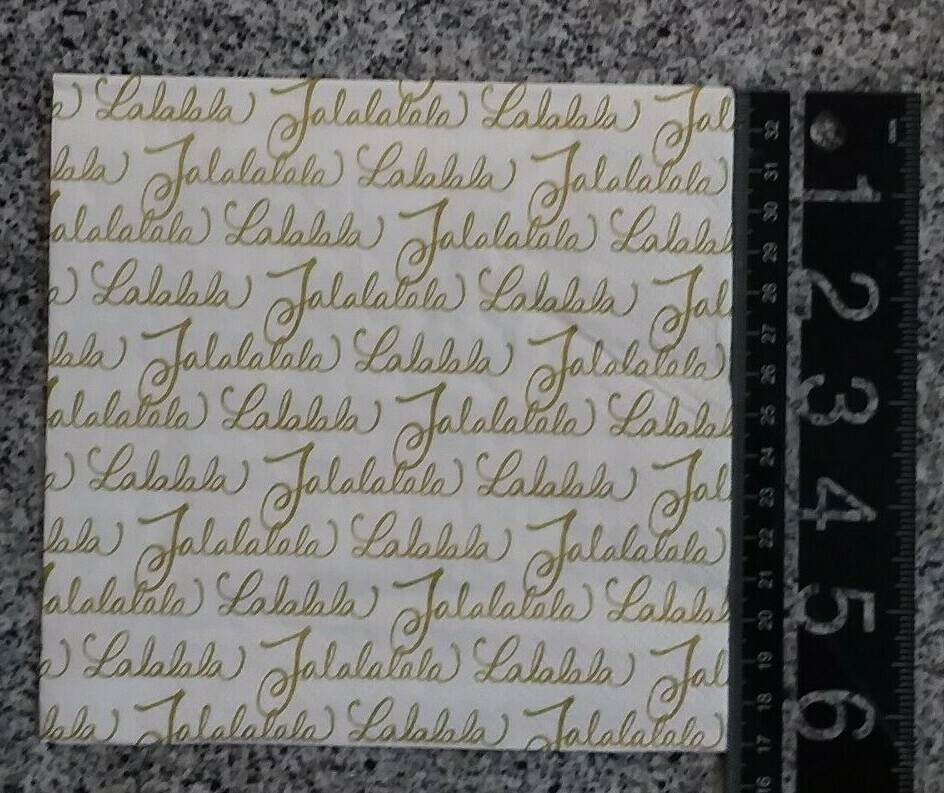 a Lalalala Falalalala Lalalala Fal
lala Falalalala Lalalala Falalalala
alalalala Lalalala Falalalala Lalalal
a Lalalala Falalalala Lalalala Fal
lala Falalalala Lalalala Falalalala
alalalala Lalalala Falalalala Lalalal
a Lalalala Falalalala Lalalala Fal
lala Falalalala Lalalala Falalalala
alalalala Lalalala Falalalala Lalalal
a Lalalala Falalalala Lalalala Fal
lala Falalalala Lalalala Falalalala
32 31 30 29 28 27 26 25 24 23 22 21 20 19 18 17 16
1 2 3 4 5 6